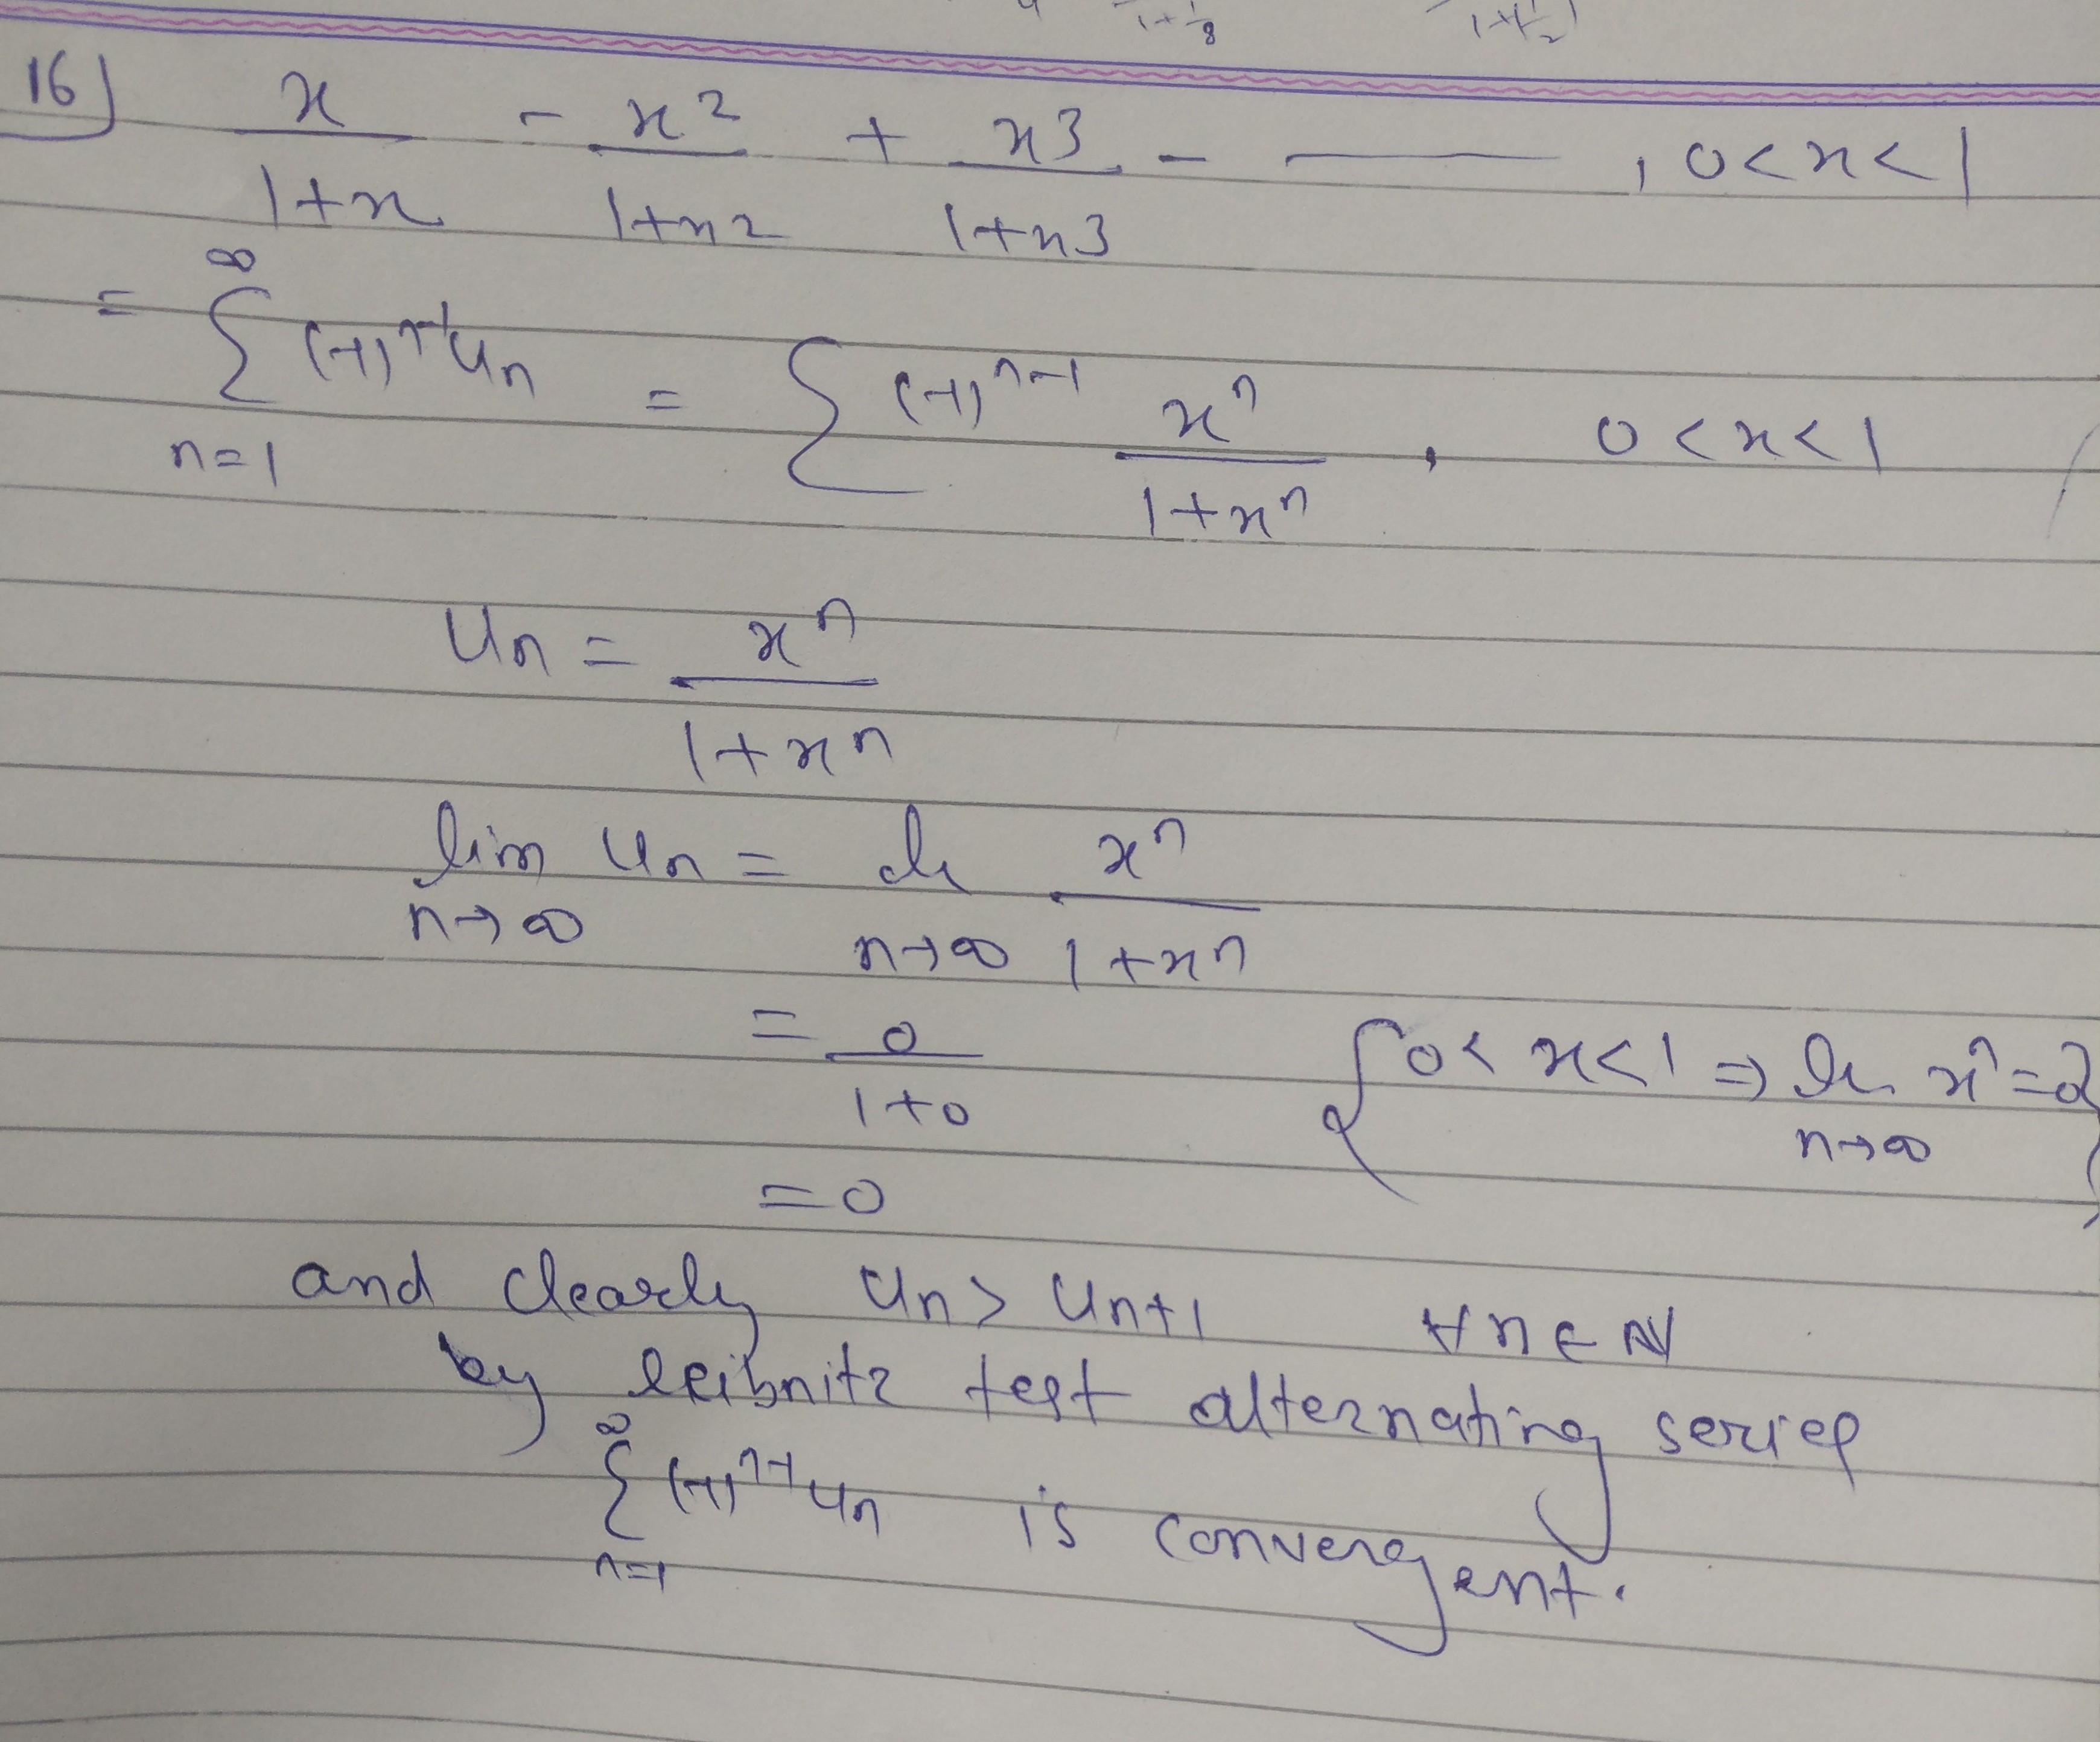 1+1/8 1+1/2
16) x/(1+x) - x²/(1+x²) + x³/(1+x³) - ——— , 0<x<1
= ∞∑n=1 (-1)ⁿ⁻¹ uₙ = ∑ (-1)ⁿ⁻¹ xⁿ/(1+xⁿ) , 0<x<1
uₙ = xⁿ/(1+xⁿ)
lim n→∞ uₙ = lt n→∞ xⁿ/(1+xⁿ)
= 0/(1+0) {0<x<1 ⇒ lt n→∞ xⁿ=0}
=0
and clearly uₙ > uₙ₊₁ ∀ n ∈ N
by leibnitz test alternating series
∞∑n=1 (-1)ⁿ⁻¹ uₙ is convergent.